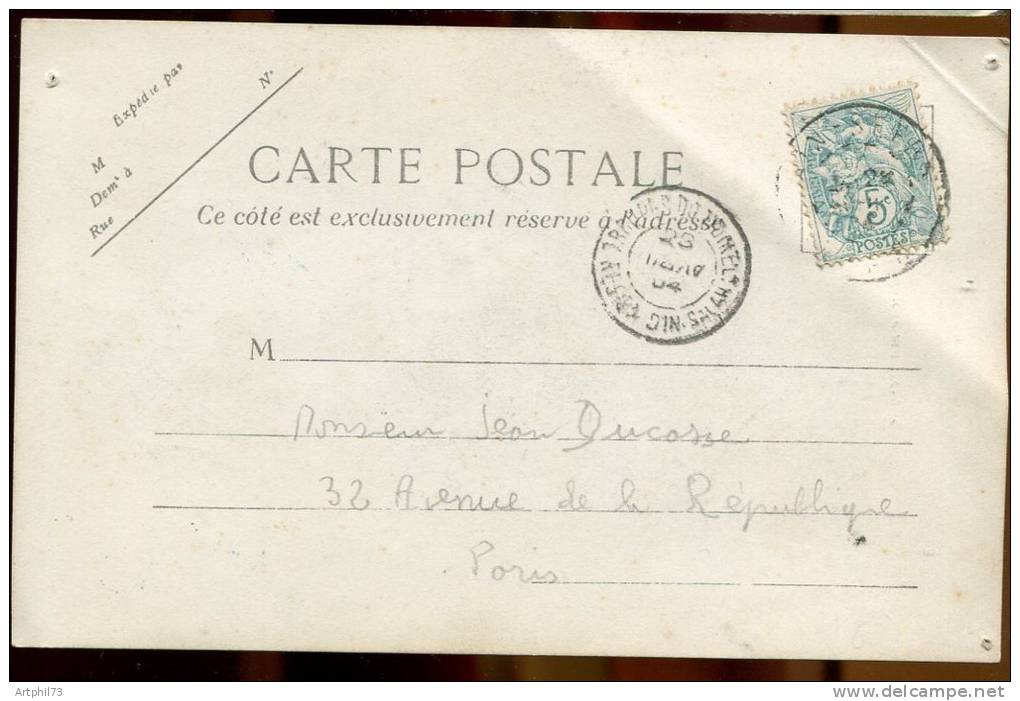 Expédie par
M
Demt à
Rue
N°
CARTE POSTALE
Ce côté est exclusivement réservé à l'adresse
5c
POSTES
23
04
M
Monsieur Jean Ducasse
32 Avenue de la République
Paris
Artphil73
www.delcampe.net